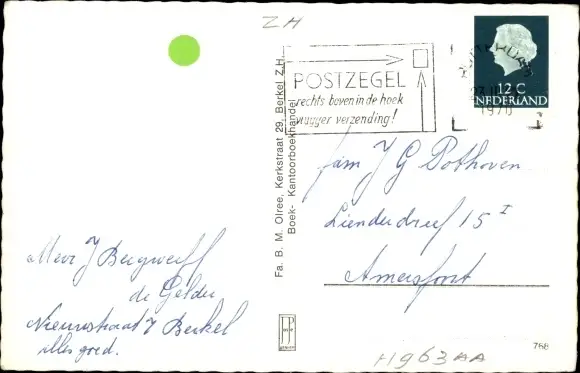 ZH
POSTZEGEL
rechts boven in de hoek
vlugger verzending!
12 C
NEDERLAND
1970
Fa. B. M. Olree, Kerkstraat 29, Berkel Z.H.
Boek- Kantoorboekhandel
fam J G Pothoven
Lienderdreef 15 I
Amersfoort
Mevr J Bergwerff
de Gelder
Nieuwstraat 7 Berkel
alles goed.
768
H963AA